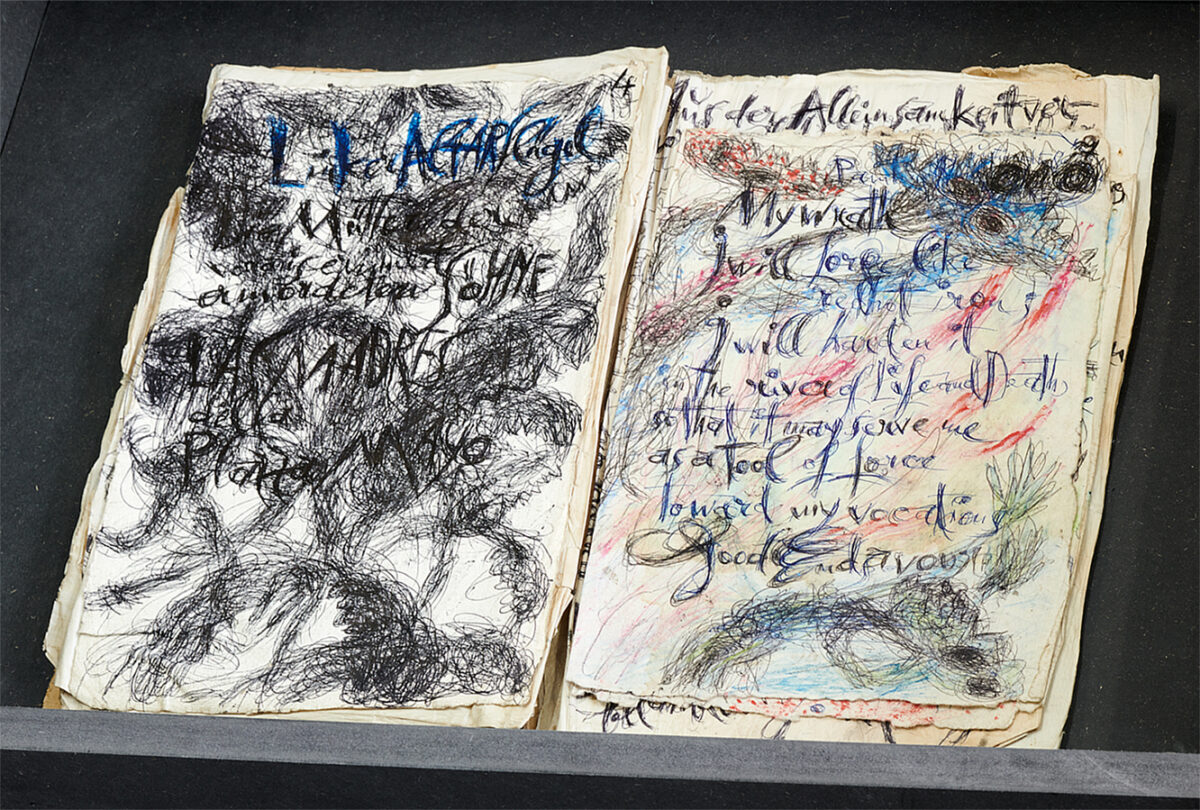 4
Linker ALTARflügel
Mütter der
ermordeten SÖHNE
LAS MADRES
de la
Plaza MAYO
Aus der Alleinsamkeit
My wrath
I will forge like
red hot iron
I will harden it
in the river of Life and Death
so that it may serve me
as a Tool of force
toward my vocation
Good Endavour